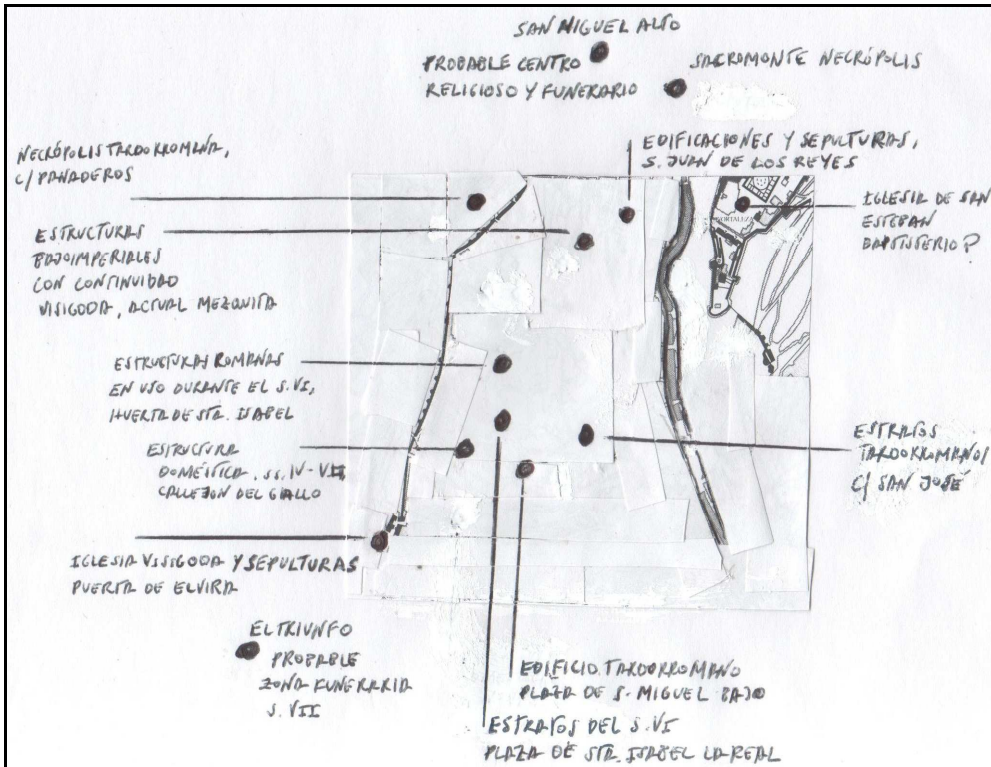 SAN MIGUEL ALTO
PROBABLE CENTRO
RELIGIOSO Y FUNERARIO
SACROMONTE NECRÓPOLIS
NECRÓPOLIS TARDORROMANA,
C/ PANADEROS
EDIFICACIONES Y SEPULTURAS,
S. JUAN DE LOS REYES
IGLESIA DE SAN
ESTEBAN
BAPTISTERIO?
ESTRUCTURAS
BAJOIMPERIALES
CON CONTINUIDAD
VISIGODA, ACTUAL MEZQUITA
ESTRUCTURAS ROMANAS
EN USO DURANTE EL S. VI,
HUERTA DE STA. ISABEL
ESTRUCTURA
DOMÉSTICA. SS. IV-VII
CALLEJON DEL GALLO
ESTRATOS
TARDORROMANOS
C/ SAN JOSÉ
IGLESIA VISIGODA Y SEPULTURAS
PUERTA DE ELVIRA
EL TRIUNFO
PROBABLE
ZONA FUNERARIA
S. VII
EDIFICIO TARDORROMANO
PLAZA DE S. MIGUEL BAJO
ESTRATOS DEL S. VI
PLAZA DE STA. ISABEL LA REAL